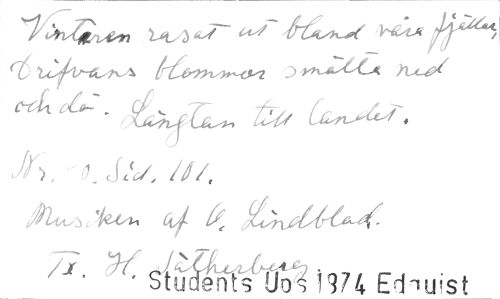 Vintern rasat ut bland våra fjällar,
Drifvans blommor smälta ned
och dö. Längtan till landet.
Nr. 0. Sid. 101.
Musiken af O. Lindblad.
Tx. H. Sätherberg
Students Ups 1874 Edquist